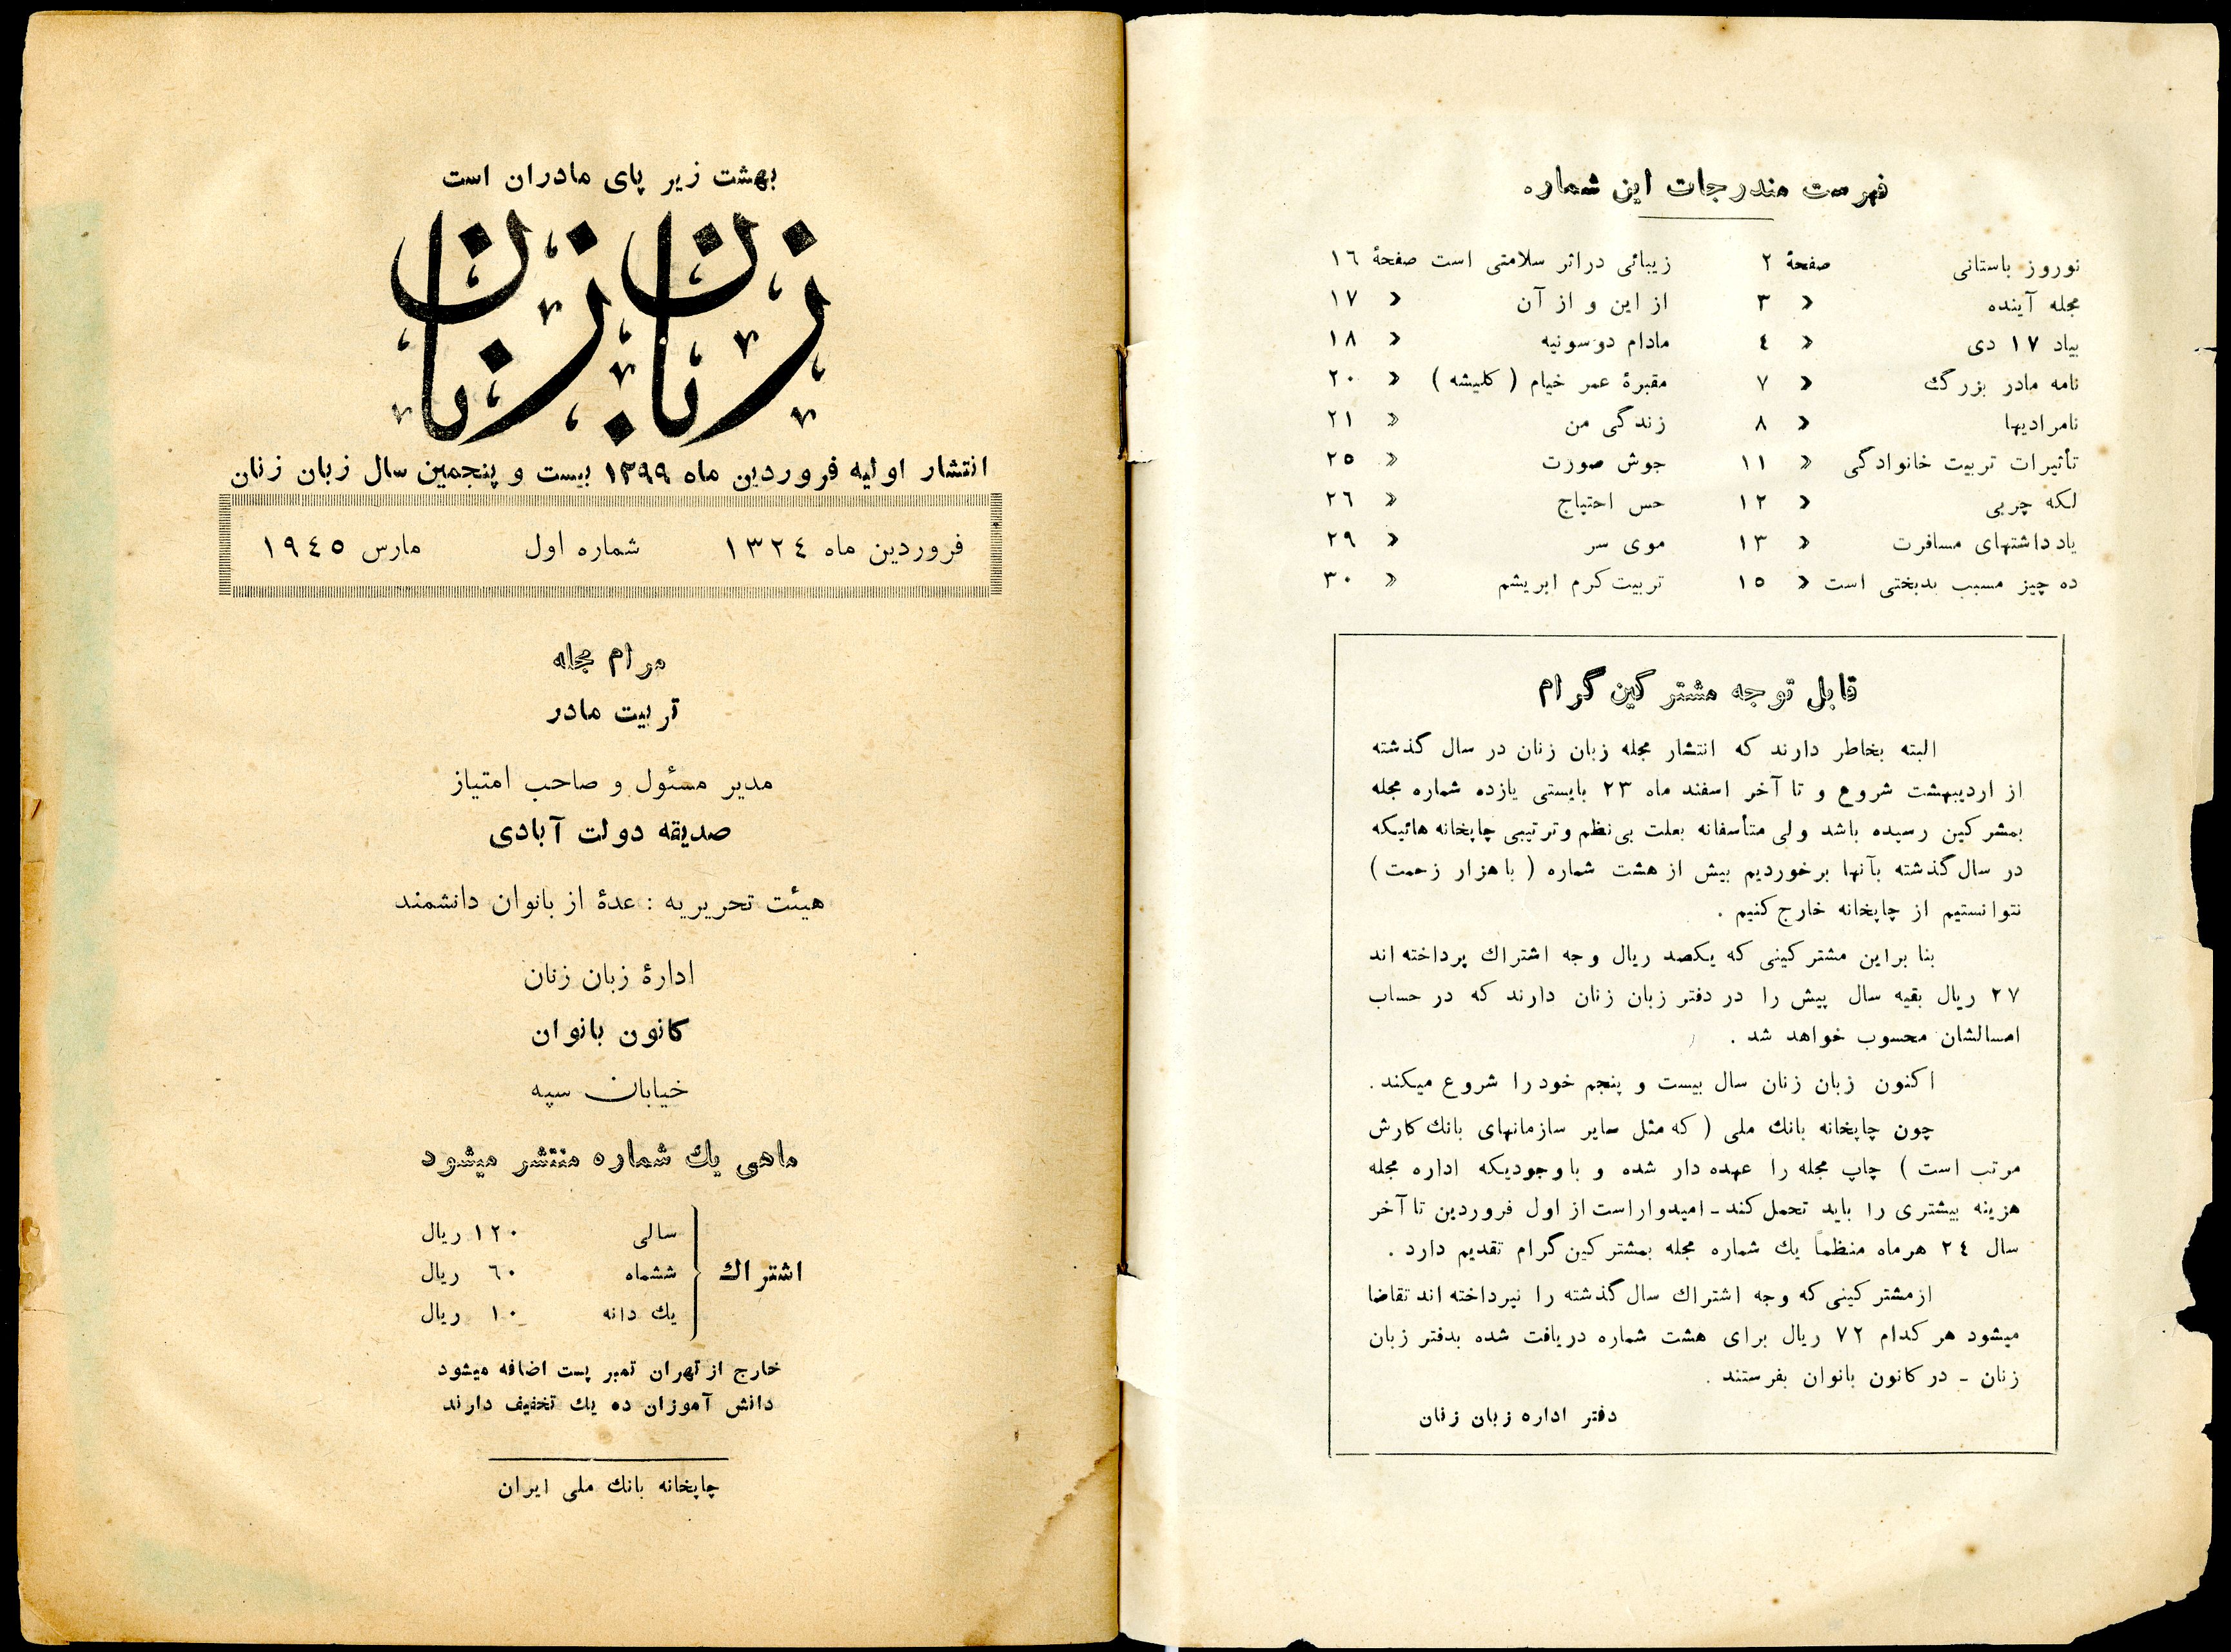 فهرست مندرجات این شماره
نوروز باستانی صفحهٔ ۲
مجله آینده » ۳
بیاد ۱۷ دی » ٤
نامه مادر بزرگ » ۷
نامرادیها » ۸
تأثیرات تربیت خانوادگی » ۱۱
لکه چربی » ۱۲
یادداشتهای مسافرت » ۱۳
ده چیز مسبب بدبختی است » ۱٥
زیبائی در اثر سلامتی است صفحهٔ ۱٦
از این و از آن » ۱۷
مادام دوسونیه » ۱۸
مقبرهٔ عمر خیام ( کلیشه ) » ۲۰
زندگی من » ۲۱
جوش صورت » ۲٥
حس احتیاج » ۲٦
موی سر » ۲۹
تربیت کرم ابریشم » ۳۰
قابل توجه مشترکین گرام
البته بخاطر دارند که انتشار مجله زبان زنان در سال گذشته
از اردیبهشت شروع و تا آخر اسفند ماه ۲۳ بایستی یازده شماره مجله
بمشرکین رسیده باشد ولی متأسفانه بعلت بی‌نظم و ترتیبی چاپخانه هائیکه
در سال گذشته بآنها برخوردیم بیش از هشت شماره ( با هزار زحمت )
نتوانستیم از چاپخانه خارج کنیم .
بنا براین مشترکینی که یکصد ریال وجه اشتراك پرداخته اند
۲۷ ریال بقیه سال پیش را در دفتر زبان زنان دارند که در حساب
امسالشان محسوب خواهد شد .
اکنون زبان زنان سال بیست و پنجم خود را شروع میکند .
چون چاپخانه بانك ملی ( که مثل سایر سازمانهای بانك کارش
مرتب است ) چاپ مجله را عهده دار شده و با وجودیکه اداره مجله
هزینه بیشتری را باید تحمل کند ـ امیدوار است از اول فروردین تا آخر
سال ۲٤ هر ماه منظماً یك شماره مجله بمشترکین گرام تقدیم دارد .
از مشترکینی که وجه اشتراك سال گذشته را نپرداخته اند تقاضا
میشود هر کدام ۷۲ ریال برای هشت شماره دریافت شده بدفتر زبان
زنان ـ در کانون بانوان بفرستند .
دفتر اداره زبان زنان
بهشت زیر پای مادران است
زبان زنان
انتشار اولیه فروردین ماه ۱۲۹۹ بیست و پنجمین سال زبان زنان
فروردین ماه ۱۳۲٤ شماره اول مارس ۱۹٤٥
مرام مجله
تربیت مادر
مدیر مسئول و صاحب امتیاز
صدیقه دولت آبادی
هیئت تحریریه : عدهٔ از بانوان دانشمند
ادارهٔ زبان زنان
کانون بانوان
خیابان سپه
ماهی یك شماره منتشر میشود
اشتراك
سالی ۱۲۰ ریال
ششماه ٦۰ ریال
یك دانه ۱۰ ریال
خارج از تهران تمبر پست اضافه میشود
دانش آموزان ده یك تخفیف دارند
چاپخانه بانك ملی ایران